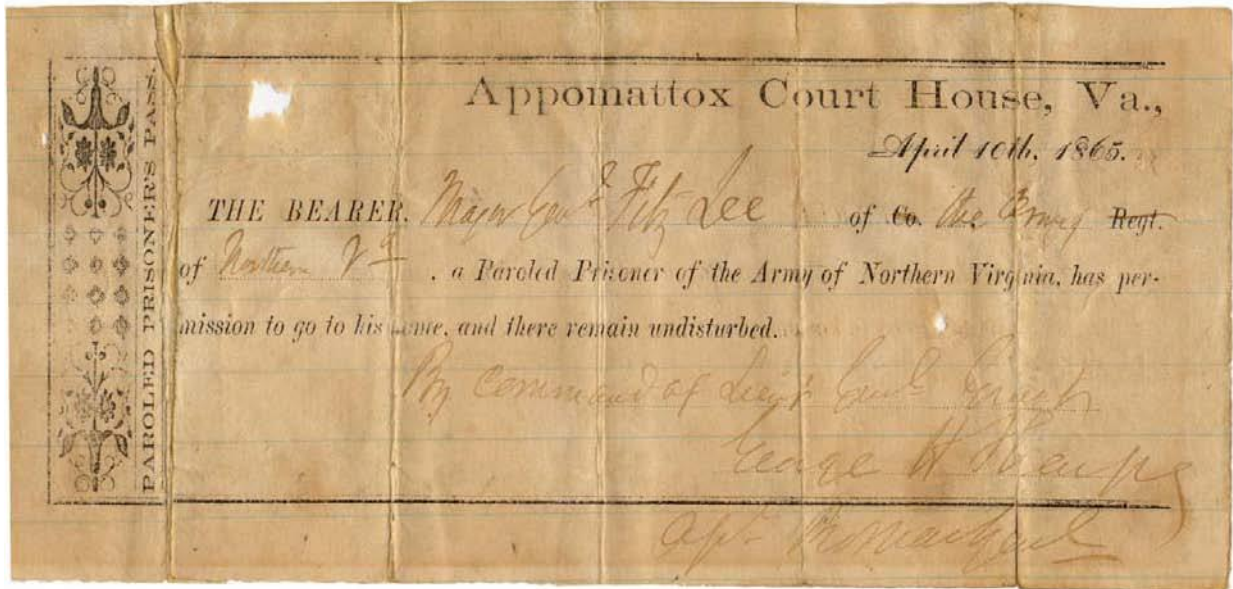 PAROLED PRISONER'S PASS.
Appomattox Court House, Va.,
April 10th, 1865.
THE BEARER, Major Genl Fitz Lee of Co. the Army Regt.
of Northern Va , a Paroled Prisoner of the Army of Northern Virginia, has per-
mission to go to his home, and there remain undisturbed.
By command of Lieut Genl Grant
George H Sharpe
Genl